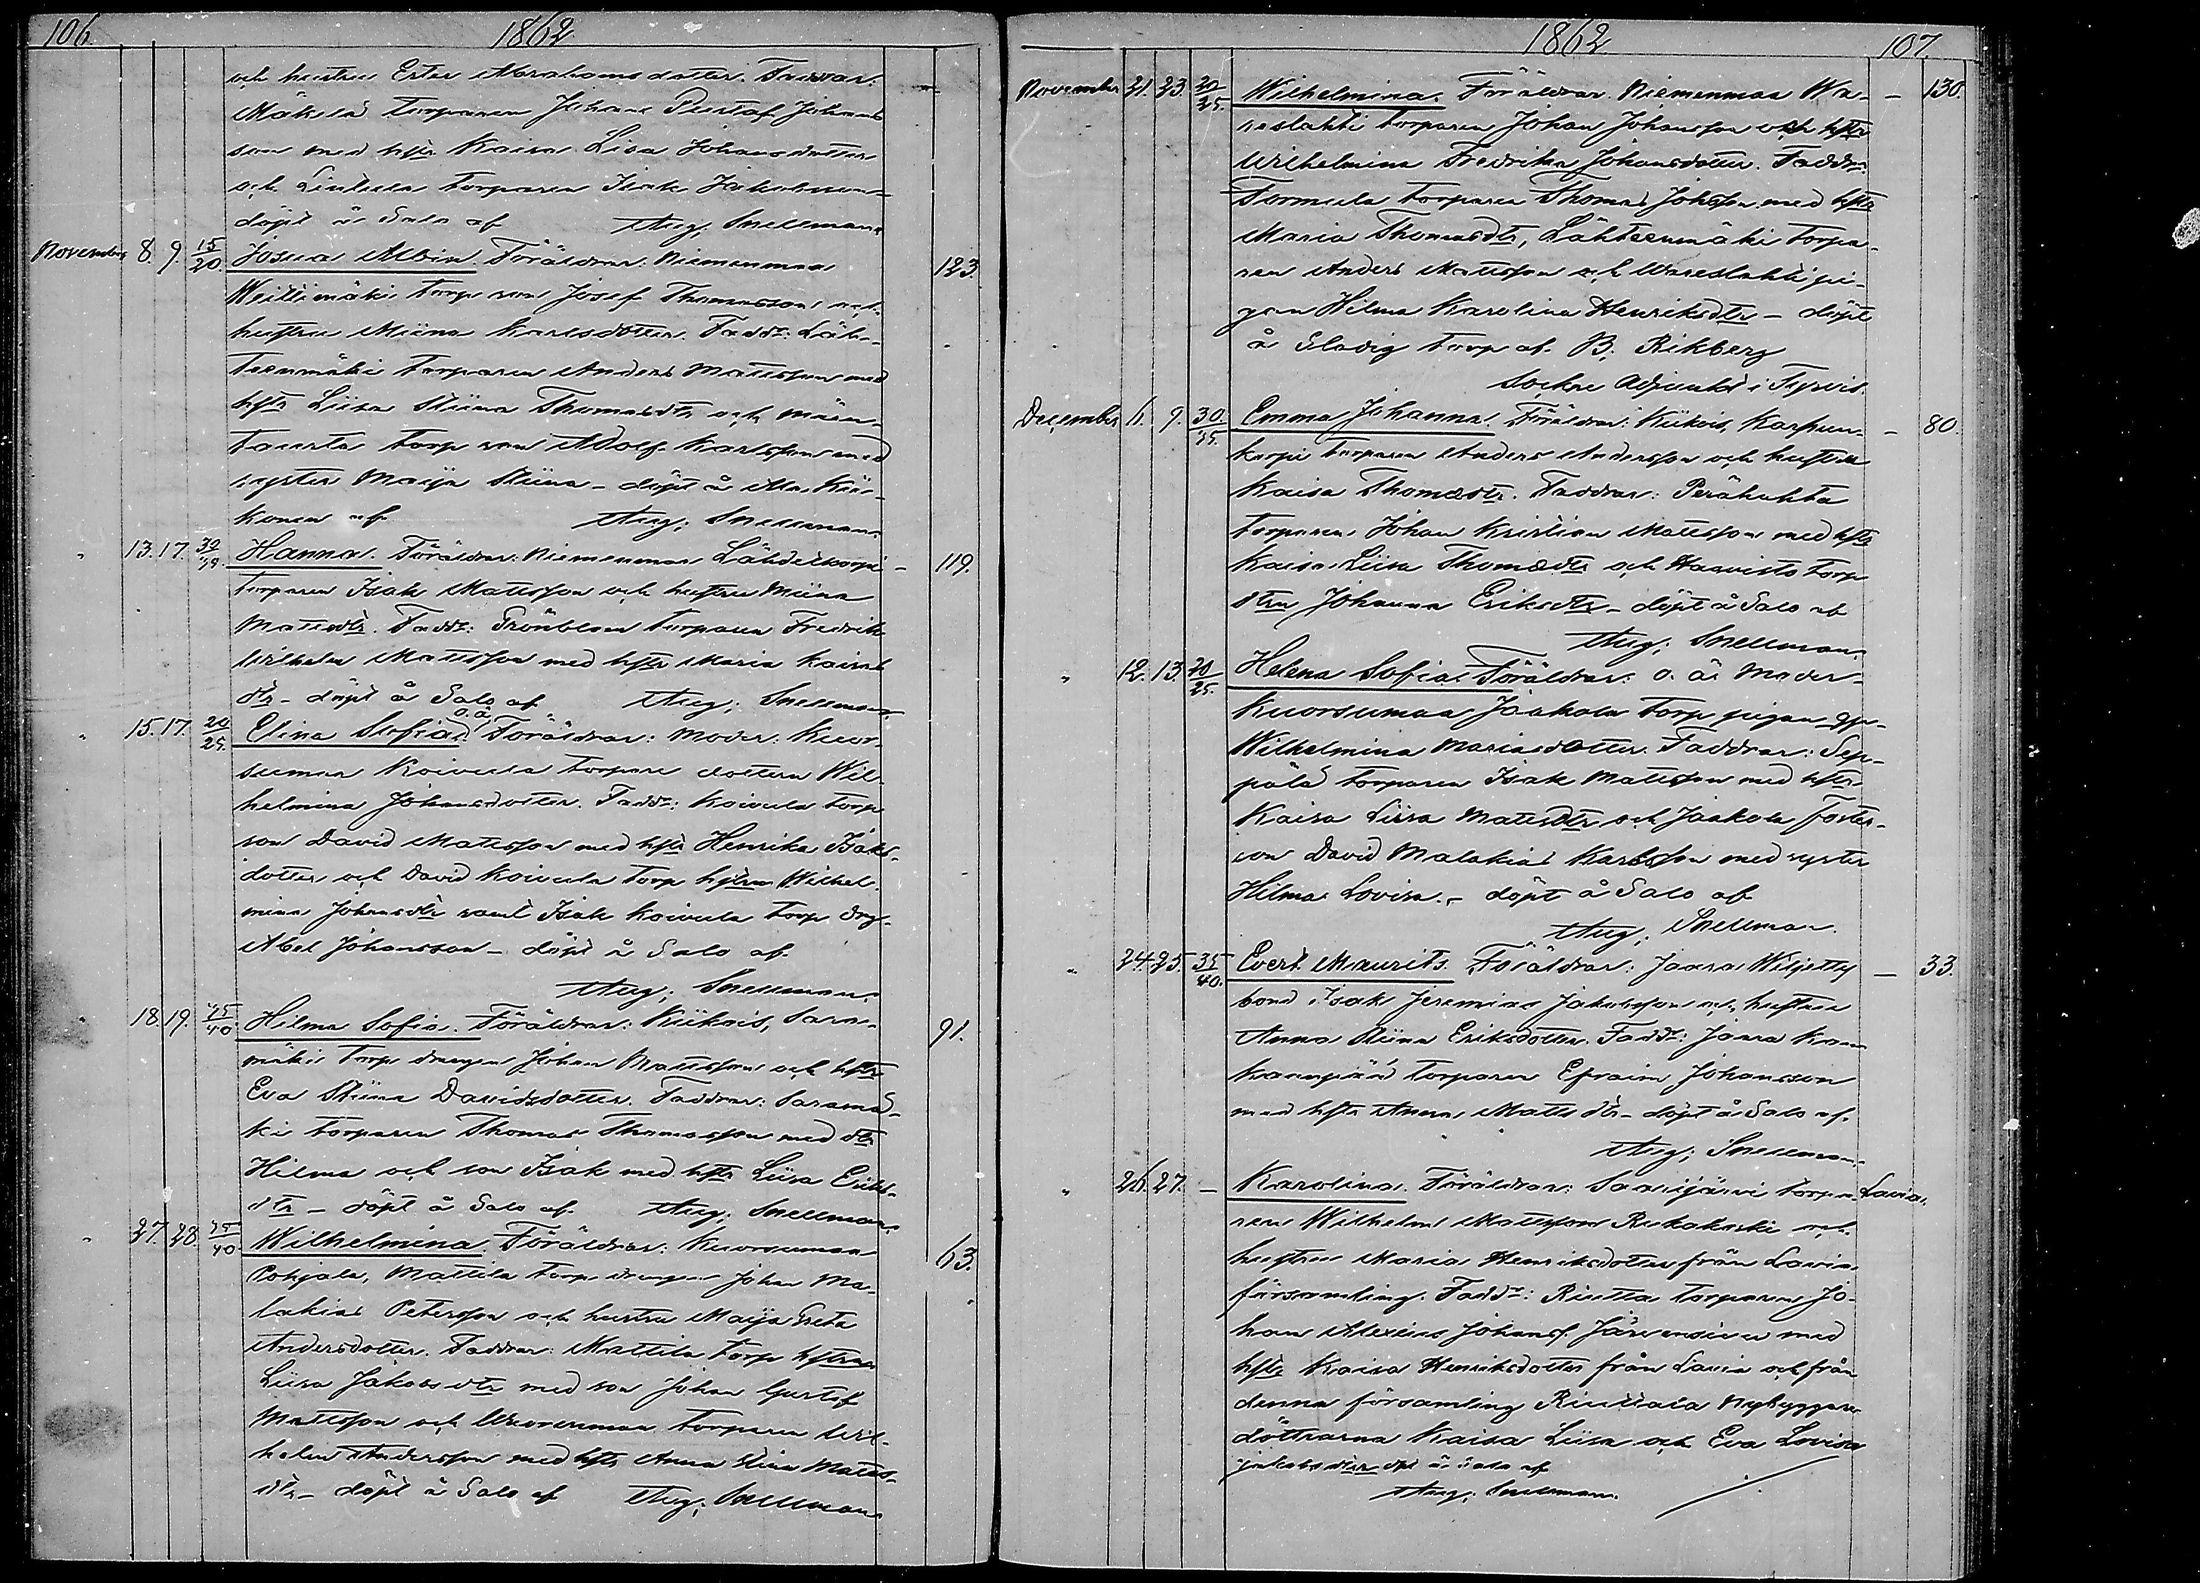 106. 1862
och hustru Ester Abrahamsdotter. Faddrar:
Mäkelä torparen Johan Gustaf Johans
son med hstr Kaisa Lisa Johansdotter
och Lintula torparen Isak Jakobsson
döpt å Salo af Aug. Snellman.
November 8. 9. 15/20. Josua Albin. Föräldrar: Niemenmaa 123.
Weittimäki torparen Josef Thomasson och
hustru Miina Karlsdotter. Faddr: Läh-
teenmäki torparen Anders Mattsson med
hstr Liisa Stiina Thomasdtr och Mäen-
tausta torp son Adolf Karlsson med
syster Maija Stiina – döpt å Ala Kii-
konen af Aug. Snellman.
" 13. 17. Hanna. Föräldrar: Niemenmaa Lähdekorpi – 119.
torparen Isak Mattsson och hustru Miina
Mattsdtr. Faddr: Grönblom torparen Fredrik
Wilhelm Mattsson med hstr Maria Kaisa
dtr – döpt å Salo af Aug. Snellman.
" 15. 17. 20/25. Elina Sofia. o. ä. Föräldrar: Moder: Kuor-
sumaa Koivula torpare dottern Wil-
helmina Johansdotter. Faddr: Koivula torp
son David Mattsson med hstr Henrika Isaks-
dotter och David Koivula torp hstrn Wilhel-
mina Johansdtr samt Isak Koivula torp drg.
Abel Johansson – döpt å Salo af
Aug. Snellman.
18. 19. 35/40 Hilma Sofia. Föräldrar: Kiikois, Sara- 91.
mäki torp drängen Johan Mattsson och hstr
Eva Stiina Davidsdotter. Faddrar: Saramä-
ki torparen Thomas Thomasson med dtr
Hilma och son Isak med hstr Liisa Eriks-
dtr – döpt å Salo af Aug. Snellman.
" 27. 28. 35/40. Wilhelmina. Föräldrar: Kuorsumaa 63.
Pohjala, Mattila torp drängen Johan Ma-
lakias Petersson och hustru Maija Greta
Andersdotter. Faddrar: Mattila torp hstrn
Liisa Jakobsdtr med son Johan Gustaf
Mattsson och Wuorenmaa torparen Wil-
helm Andersson med hstr Anna Stina Matts-
dtr – döpt å Salo af Aug. Snellman
1862 107.
November 21. 23. 20/25. Wilhelmina. Föräldrar: Niemenmaa Wa- – 130.
reslahti torparen Johan Johansson och hstr
Wilhelmina Fredrika Johansdotter. Faddr:
Tormula torparen Thomas Johsson med hstr
Maria Thomasdtr, Lähteenmäki torpa-
ren Anders Mattsson och Wareslahti pi-
gan Hilma Karolina Henriksdtr – döpt
å Sladig torp af B. Rikberg
Sockne Adjunkt i Tyrvis.
December 6. 9. 30/35. Emma Johanna. Föräldrar: Kiikois, Karhun- – 80.
korpi torparen Anders Andersson och hustru
Kaisa Thomasdtr. Faddrar: Perähuhta
torparen Johan Kristian Mattsson med hstr
Kaisa Liisa Thomasdtr och Haavisto torp
dtrn Johanna Eriksdtr – döpt å Salo af
Aug. Snellman.
" 12. 13. 20/25. Helena Sofia. Föräldrar: o. ä. Moder-
Kuorsumaa Jaakola torp pigan
Wilhelmina Mariasdotter. Faddrar: Sep-
pälä torparen Isak Mattsson med hstr
Kaisa Liisa Mattsdtr och Jaakola foster-
son David Malakias Karlsson med syster
Hilma Lovisa. – döpt å Salo af
Aug. Snellman.
" 24. 25. 35/40. Evert Maurits. Föräldrar: Jaara Wiljetty – 33.
bond. Isak Jeremias Jakobsson och hustru
Anna Stiina Eriksdotter. Faddr: Jaara Kan-
kaanpää torparen Efraim Johansson
med hstr Anna Matts dtr – döpt å Salo af
Aug. Snellman.
" 26. 27. – Karolina. Föräldrar: Saarijärvi torpa- Lavia.
ren Wilhelm Mattsson och
hustru Maria Henriksdotter från Lavia
församling. Faddr: torparen Jo-
han Alexius Johans. med
hstr Kaisa Henriksdotter från Lavia och från
denna församling Riuttala Nybyggare
döttrarna Kaisa Liisa och Eva Lovisa
Jakobsdtrar döpt å Salo af
Aug. Snellman.